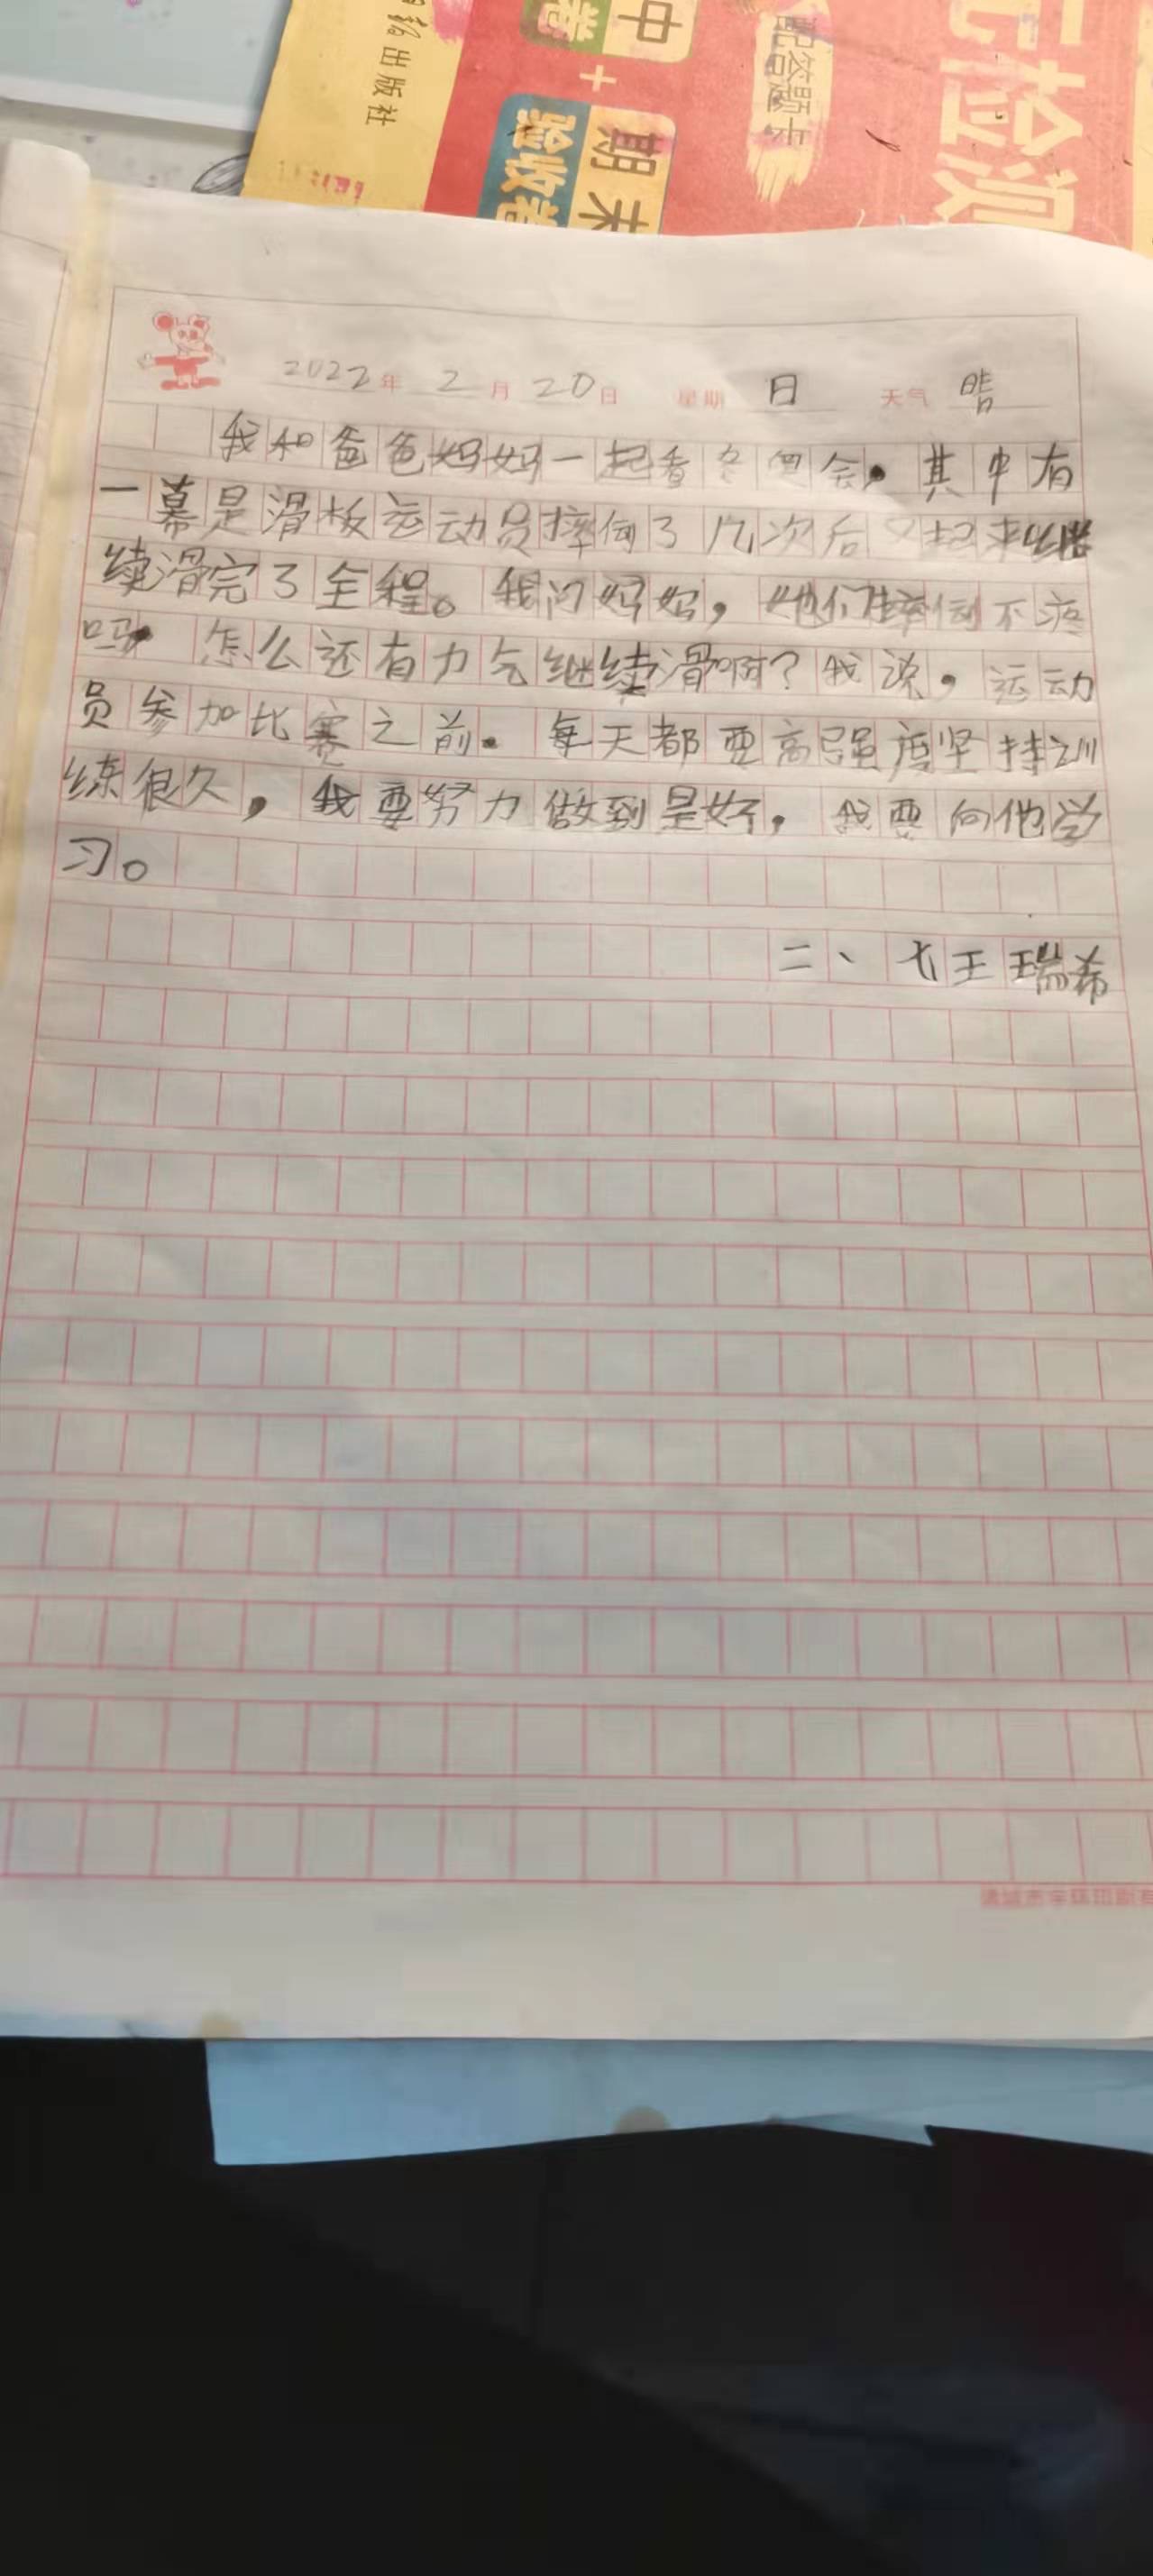 日报出版社
中卷
+
期末
验收卷
配答题卡
元检测
2022年 2月 20日 星期 日 天气 晴
我和爸爸妈妈一起看冬奥会,其中有
一幕是滑板运动员摔倒了几次后又起来继
续滑完了全程。我问妈妈,他们摔倒不疼
吗 怎么还有力气继续滑啊?我说,运动
员参加比赛之前。每天都要高强度坚持训
练很久,我要努力做到是好,我要向他学
习。
二、七王瑞希